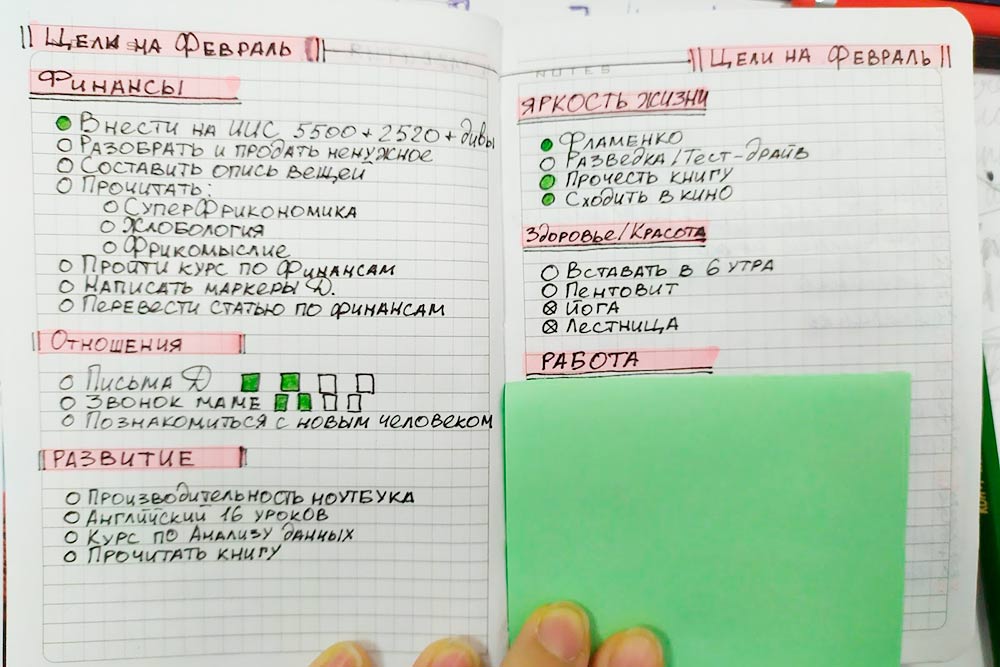 Цели на Февраль
Финансы
Внести на ИИС 5500 + 2520 + дивы
Разобрать и продать ненужное
Составить опись вещей
Прочитать:
СуперФрикономика
Жлобология
Фрикомыслие
Пройти курс по финансам
Написать маркеры Д.
Перевести статью по финансам
Отношения
Письма Д
Звонок маме
Познакомиться с новым человеком
Развитие
Производительность ноутбука
Английский 16 уроков
Курс по Анализу данных
Прочитать книгу
NOTES
Цели на Февраль
Яркость жизни
Фламенко
Разведка/Тест-драйв
Прочесть книгу
Сходить в кино
Здоровье/Красота
Вставать в 6 утра
Пентовит
Йога
Лестница
Работа